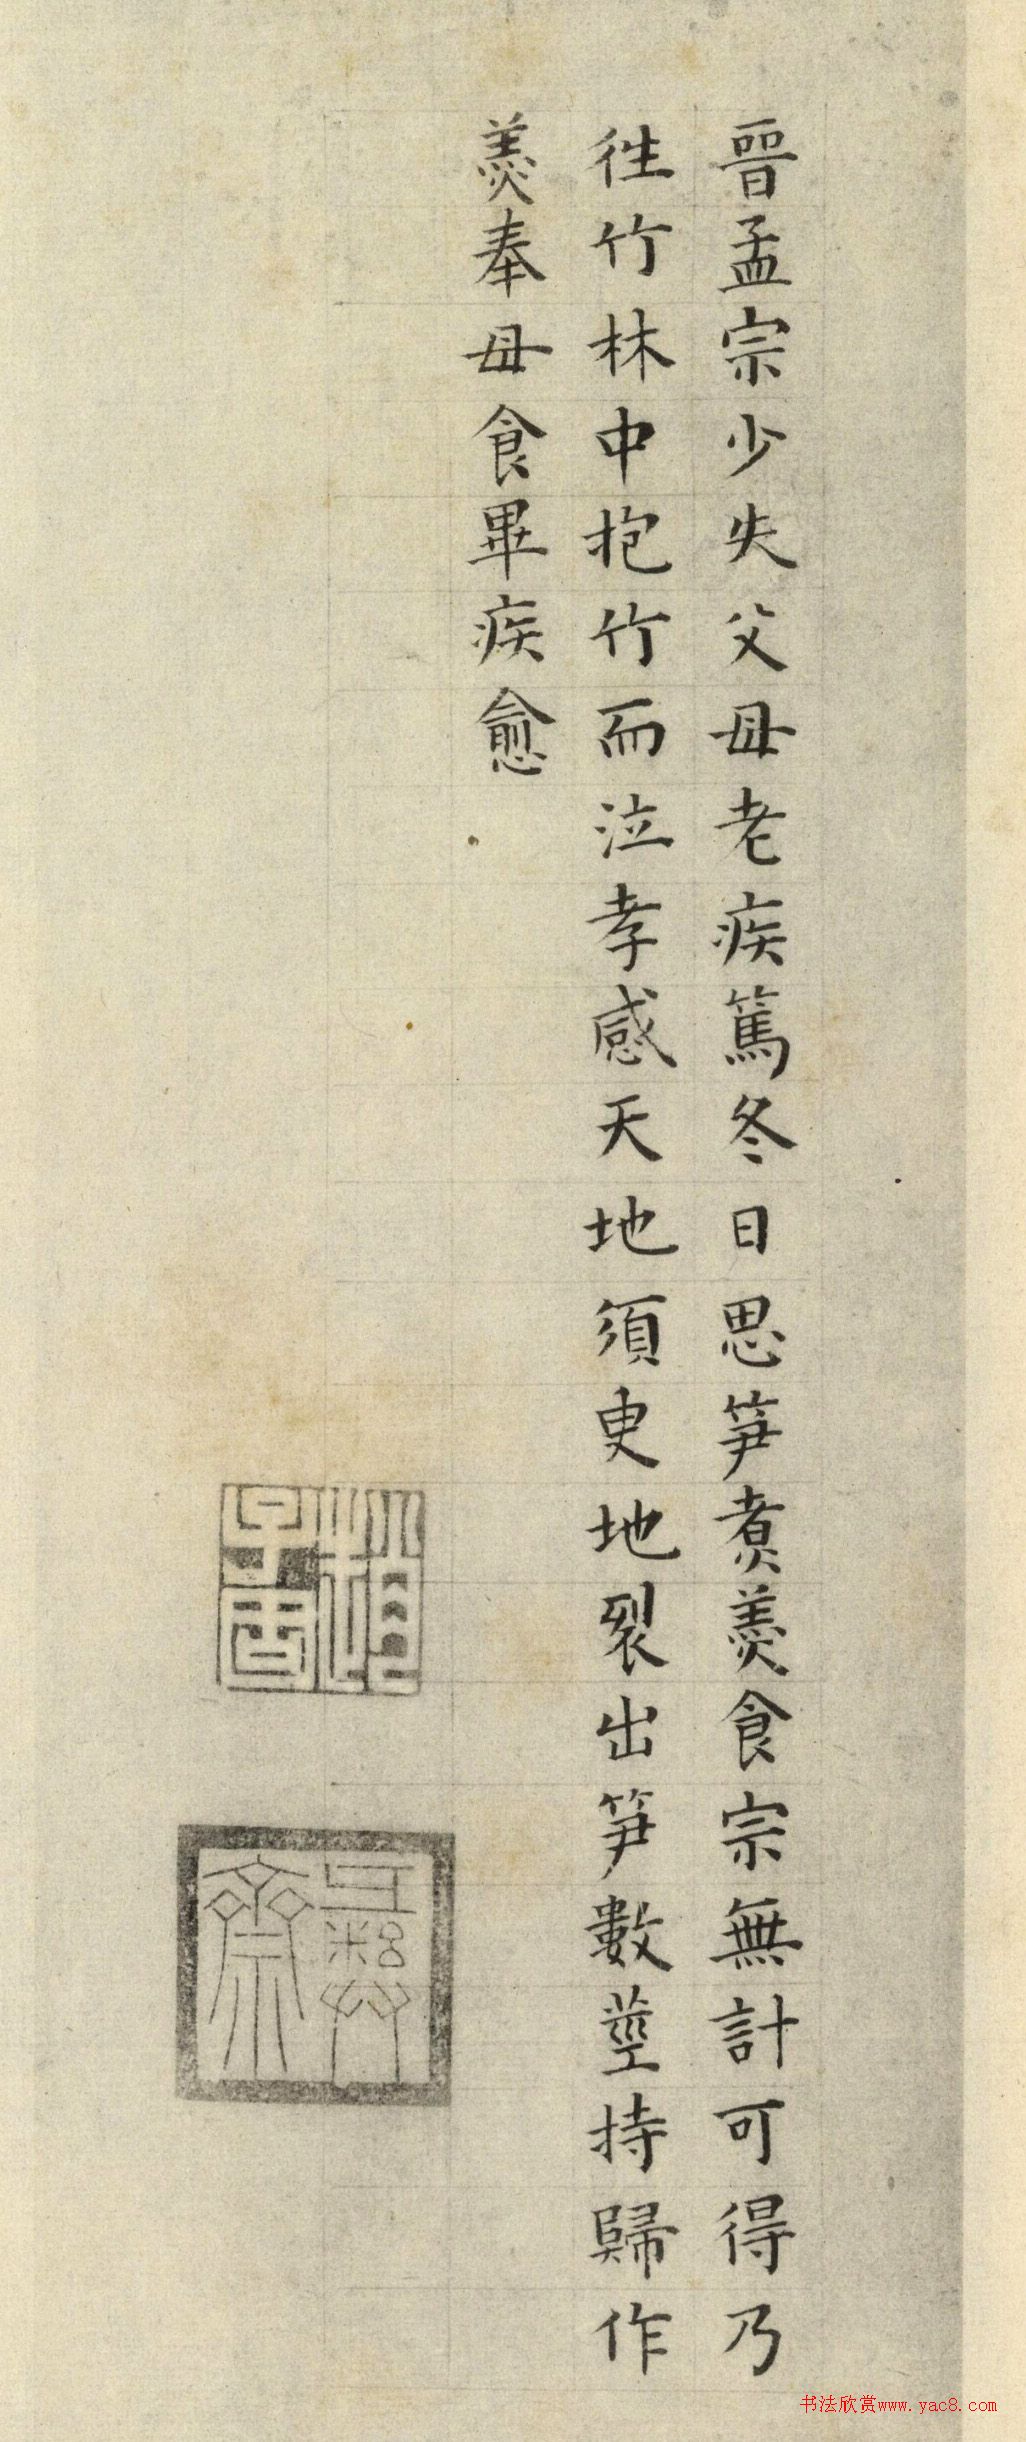 晉孟宗少失父母老疾篤冬日思笋煮羹食宗無計可得乃
徃竹林中抱竹而泣孝感天地須臾地裂出笋數莖持歸作
羹奉母食畢疾愈
书法欣赏www.yac8.com